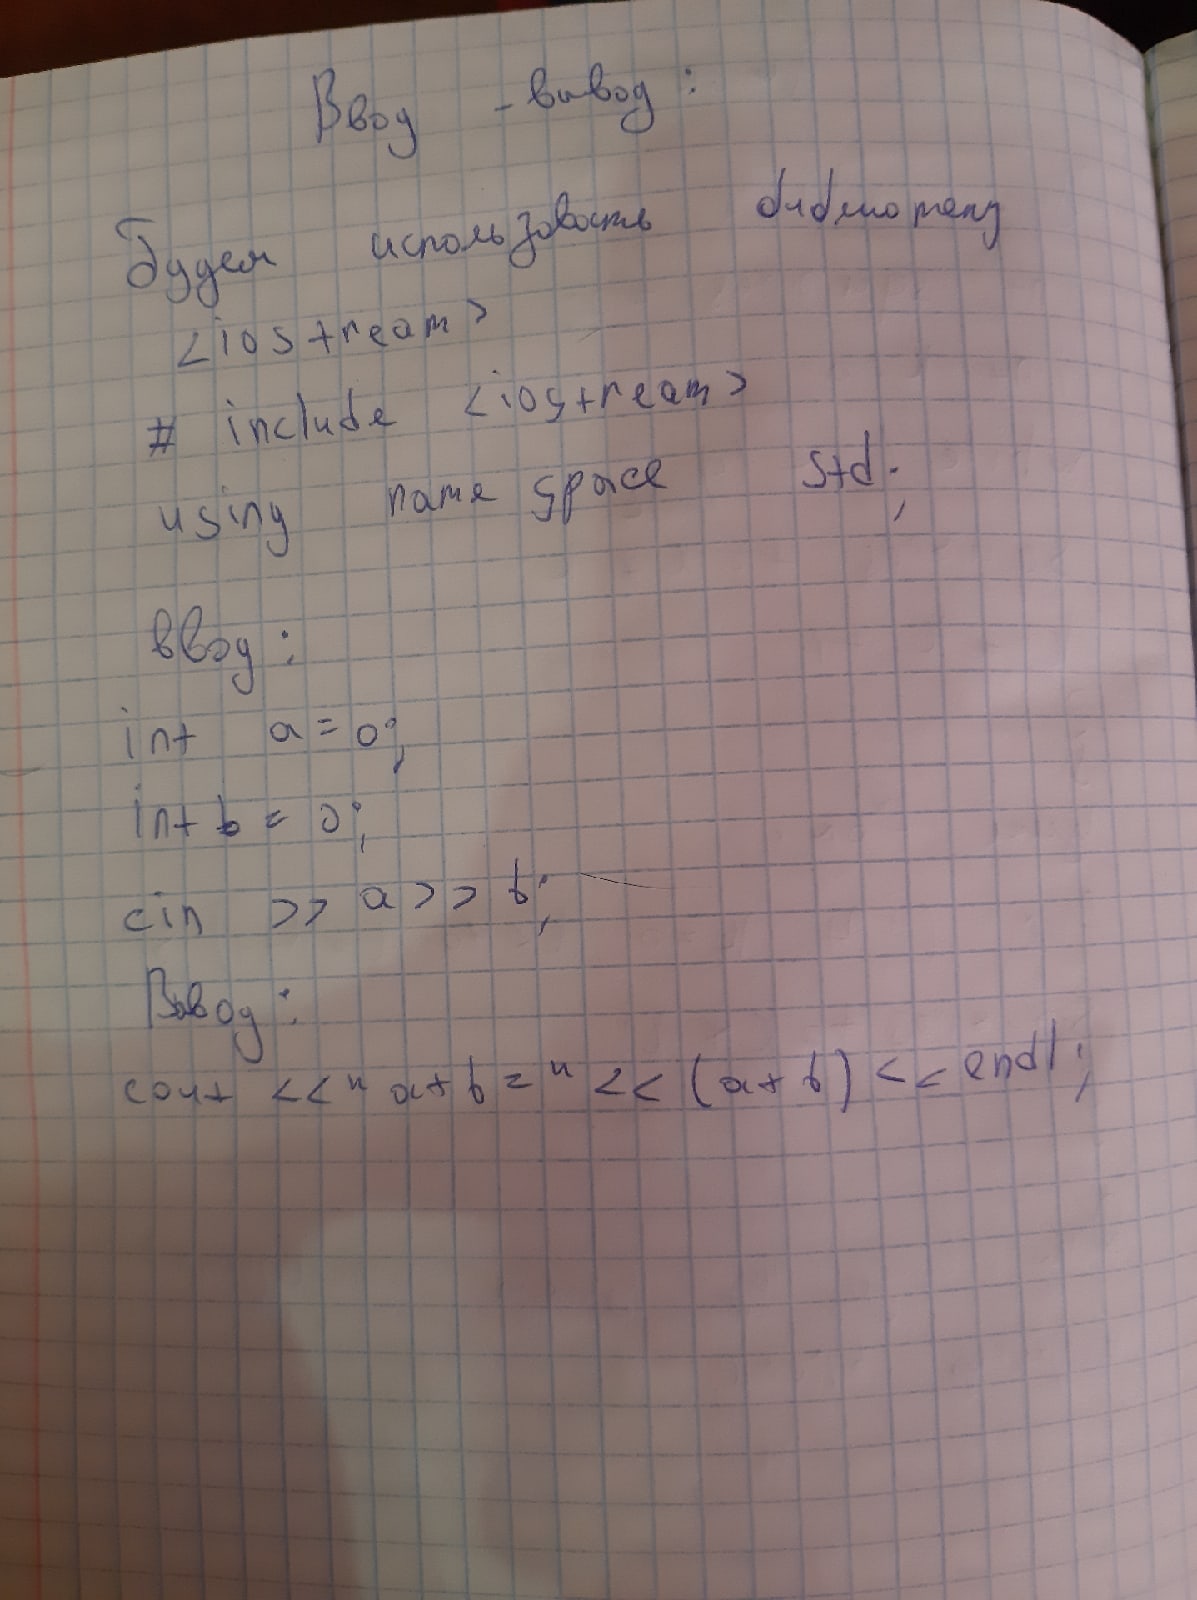 Ввод - вывод:
Будем использовать библиотеку
<iostream>
# include <iostream>
using name space std;
ввод:
int a = 0;
int b = 0;
cin >> a >> b;
Вывод:
cout << "a+b=" << (a+b) << endl;